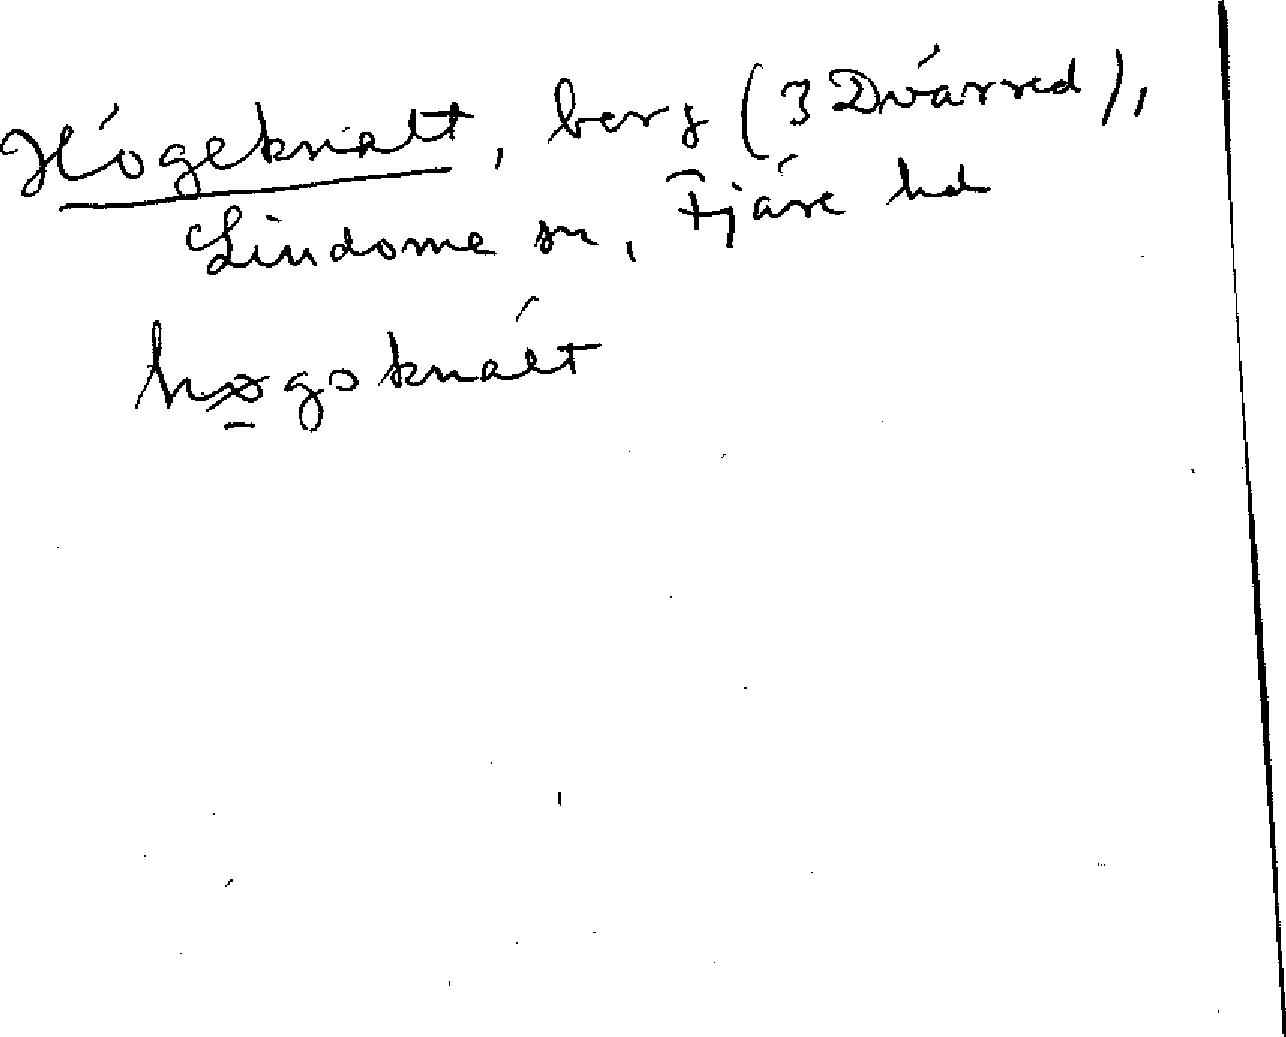 Högeknalt, berg (3 Dvärred),
Lindome sn, Fjäre hd
høgoknalt